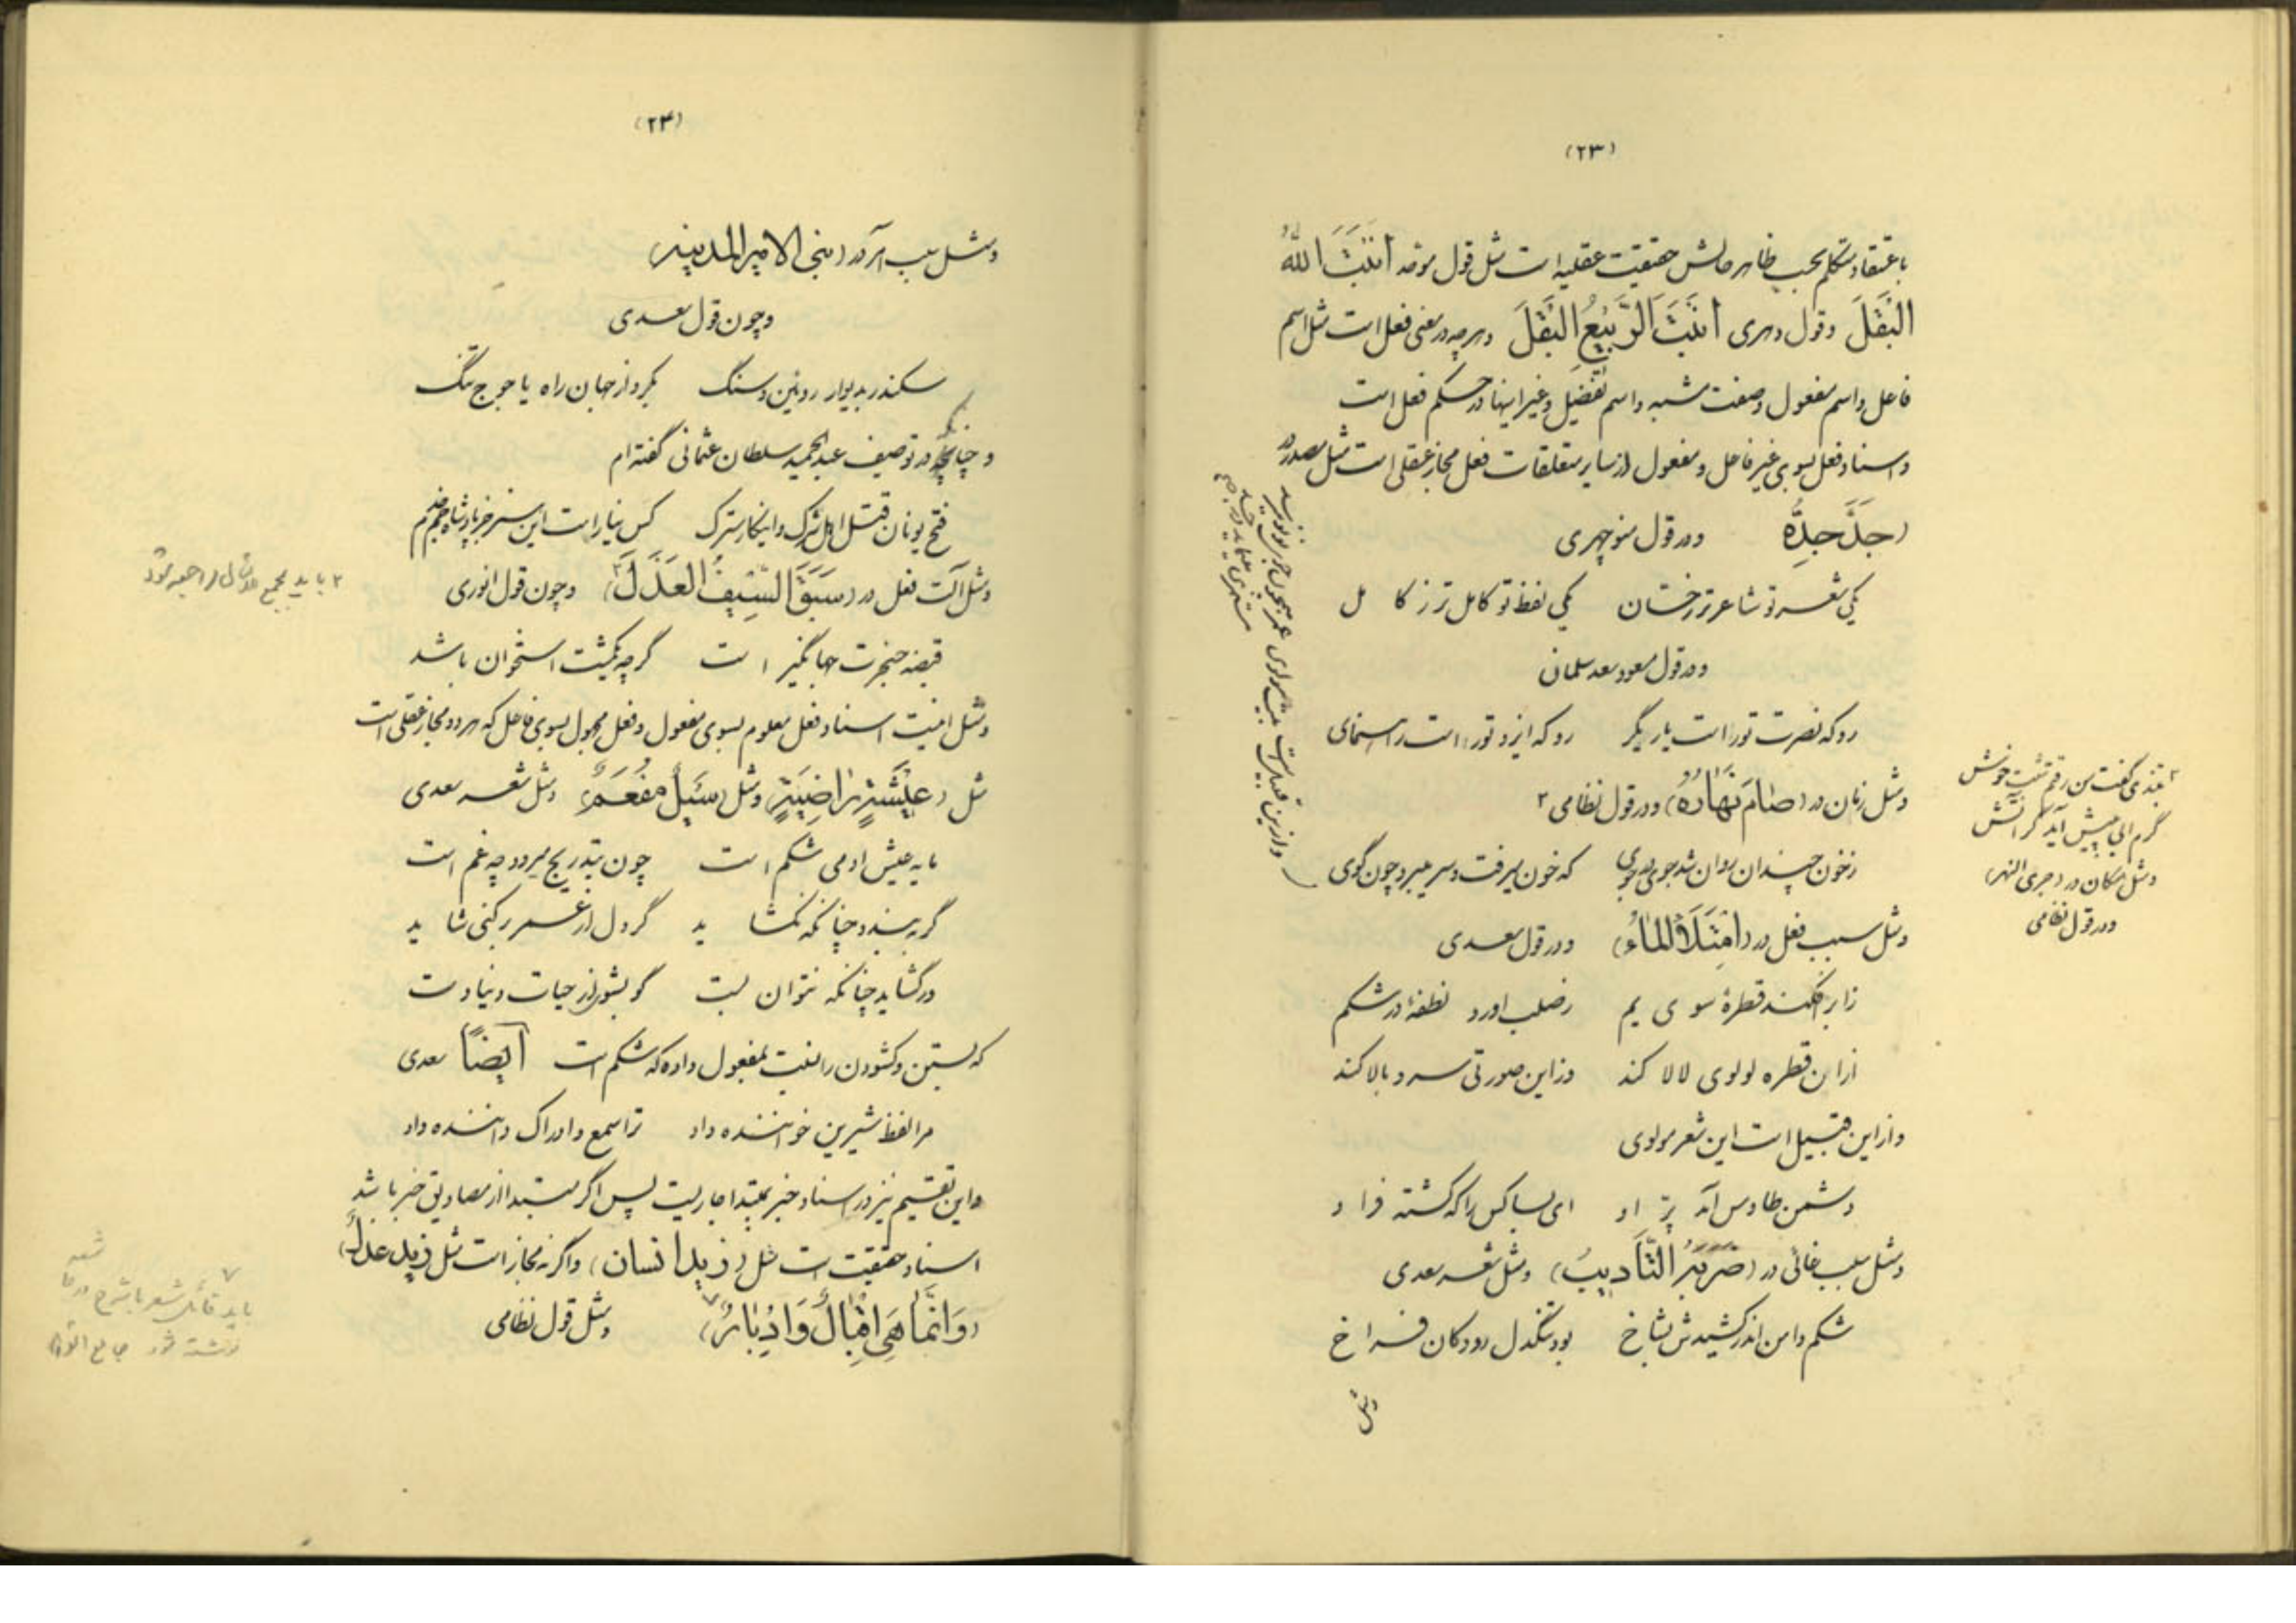 (۲۳)
باعتقاد متکلم بحسب ظاهر حالش حقیقت عقلیه است مثل قول موحد اَنْبَتَ اللهُ
الْبَقَلَ وقول دهری اَنْبَتَ الرَّبِیْعُ الْبَقَلَ وهرچه در معنی فعل است مثل اسم
فاعل واسم مفعول وصفت مشبه واسم تفضیل وغیر اینها در حکم فعل است
واسناد فعل بسوی غیر فاعل ومفعول از سایر متعلقات فعل مجاز عقلی است مثل مصدر در
(جَدَّ جِدُّه) ودر قول منوچهری
یکی شعر تو شاعرتر ز حسّان یکی لفظ تو کامل تر ز کامل
ودر قول مسعود سعد سلمان
رو که نصرت تو راست یاریگر رو که ایزد تو راست راهنمای
ومثل زمان در (صَامَ نَهَارُهُ) ودر قول نظامی ۲
ز خون چندان روان شد جوی در جوی که خون میرفت وسر میبرد چون گوی
ومثل سبب فعل در (اِمْتَلَأَ الْمَاءُ) ودر قول سعدی
ز ابر افکند قطرهٔ سوی یم ز صلب اورد نطفهٔ در شکم
ازان قطره لولوی لالا کند وز این صورتی سرو بالا کند
واز این قبیل است این شعر مولوی
دشمن طاوس آمد پرّ او ای بسا کس را که کشته فرّ او
ومثل سبب غائی در (ضَرَبَ التَّأدِیبُ) ومثل شعر سعدی
شکم دامن اندر کشیدش ز شاخ بود تنگدل رودگان فراخ
ومثل
۲ بتندی گفت من رفتم شبت خوش
گرم آبی به پیش آید گر آتش
ومثل مکان در (جری النهر)
ودر قول نظامی
وازین قبیل است بیت مولوی
(۲۴)
ومثل سبب آمر در (بنی الامیر المدینه)
وچون قول سعدی
سکندر بدیوار روئین وسنگ بکرد از جهان راه یاجوج تنگ
وچنانکه در توصیف عبدالحمید سلطان عثمانی گفته ام
فتح یونان قتل اهل شرک واینکار سترک کس نیاراست این سفر جز پادشاه
ومثل آلت فعل در (سَبَقَ السَّیْفُ الْعَذَلَ) وچون قول انوری
قبضه خنجرت جهانگیر است گرچه یکمشت استخوان باشد
ومثل اینست اسناد فعل معلوم بسوی مفعول وفعل مجهول بسوی فاعل که هر دو مجاز عقلی است
مثل (عِیْشَةٍ رَاضِیَةٍ) ومثل (سَیْلٌ مُفْعَمٌ) ومثل شعر سعدی
مایه عیش ادمی شکم است چون بتدریج میرود چه غم است
گر به بندد چنانکه نگشاید گر دل از عمر برکنی شاید
ور گشاید چنانکه نتوان بست گو بشوی از حیات دنیا دست
که بستن وکشودن را نسبت بمفعول داده که شکم است اَیضاً سعدی
مرا لفظ شیرین خواننده داد ترا سمع وادراک داننده داد
واین تقسیم نیز در اسناد خبر بمبتدا جاریست پس اگر مبتدا از مصادیق خبر باشد
اسناد حقیقت است مثل (زید انسان) واگرنه مجاز است مثل (زیدٌ عَدلٌ)
(وَاِنَّمَا هِیَ اِقْبَالٌ وَاِدْبَارٌ) ۷ ومثل قول نظامی
۲ باید بمجمع الامثال مراجعه شود
۷
باید قائل شعر با شرح
نوشته شود